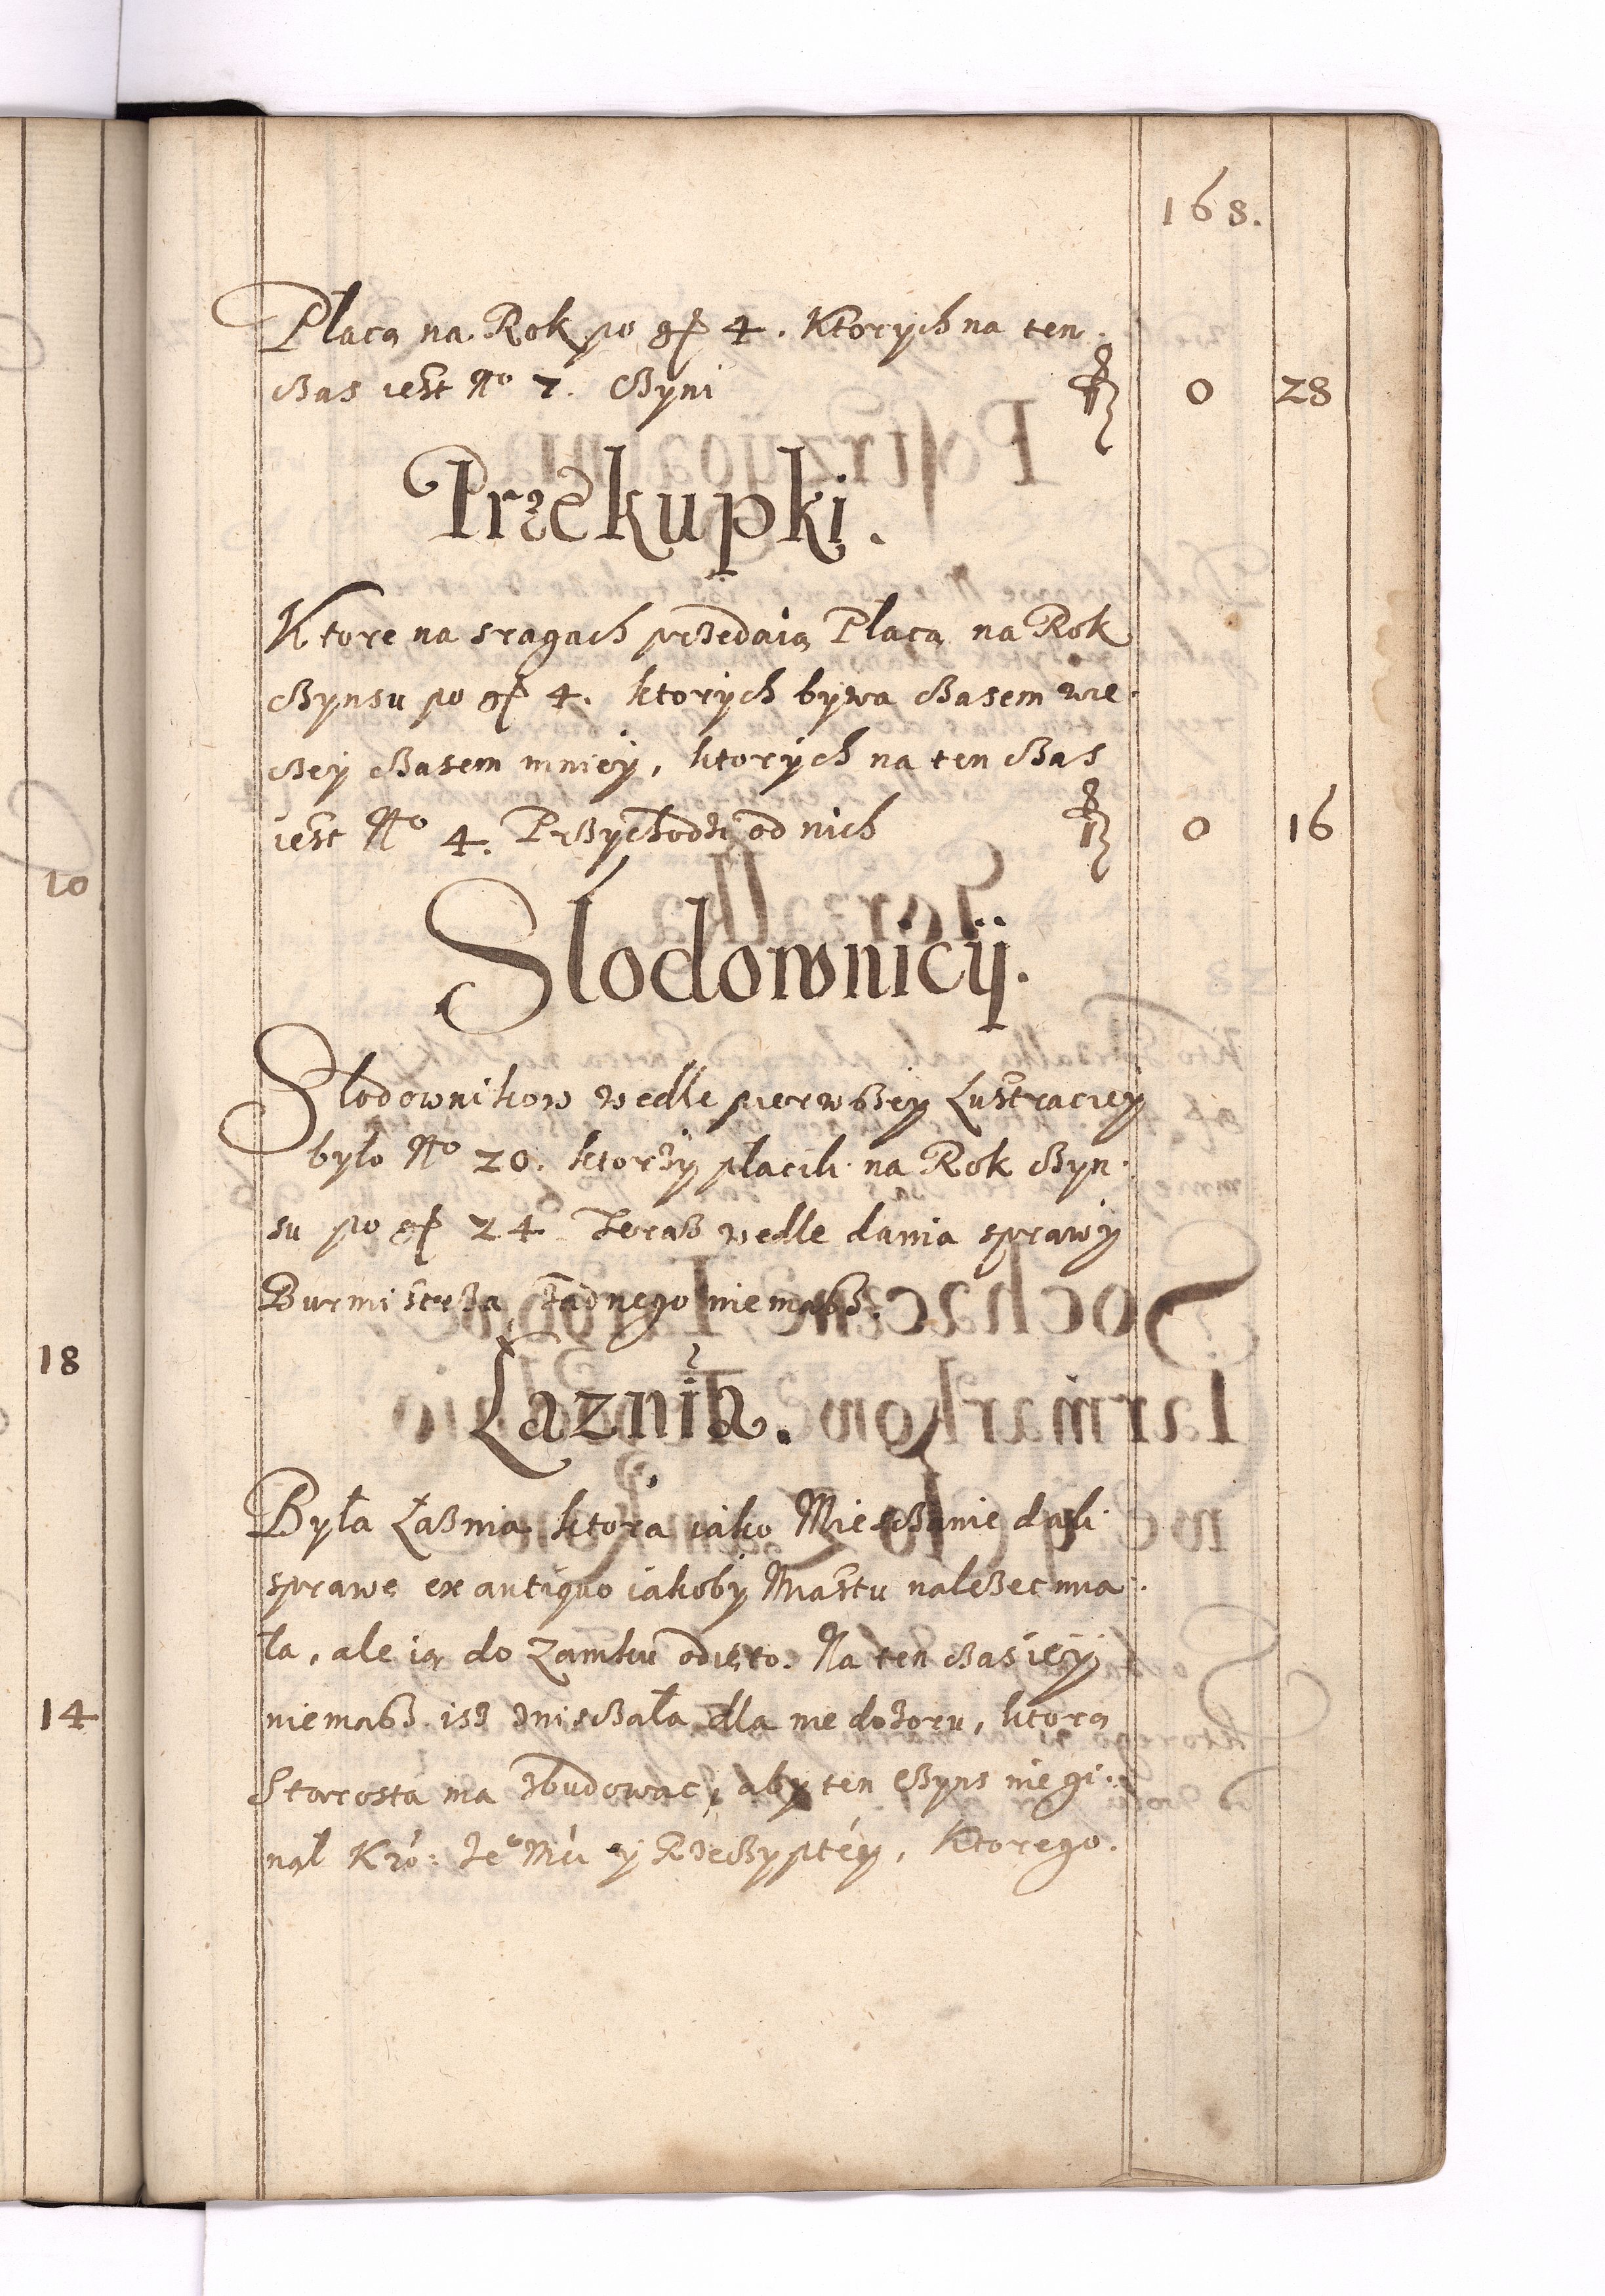 168.
Płacą na Rok po gr 4. Ktorych na ten
czas iest No 7. Czyni fl 0 28
Przekupki.
Ktore na sragach przedaią Płacą na Rok
Czynsu po gr 4. ktorych bywa czasem wie
czey czasem mniey, ktorych na ten czas
iest No 4. Przychodzi od nich fl 0 16
Slodownicÿ.
Slodownikow wedle pierwszey Lustraciey
było No 20. ktorzy płacili na Rok Czyn
su po gr 24 Teraz wedle dania sprawy
Burmistrza żadnego niemasz.
Łaznia.
Była Łaznia ktora iako Miesczanie dali
sprawę ex antiquo iakoby Miastu należec mia
ła, ale ią do Zamku odięto. Na ten czas iey
niemasz isz zniszczała dla niedozoru, ktorą
Starosta ma zbudowac, aby ten Czyns niegi
nął Kro: Je Mci y Rzeczyptey, Ktorego.
10
18
14